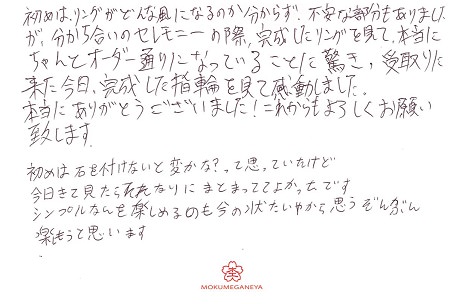 初めは、リングがどんな風になるのか分からず、不安な部分もありました
が、分かち合いのセレモニーの際、完成したリングを見て、本当に
ちゃんとオーダー通りになっていることに驚き、受取りに
来た今日、完成した指輪を見て感動しました。
本当にありがとうございました！これからもよろしくお願い
致します。
初めは石を付けないと変かな？って思っていたけど
今日きて見たらそれなりにまとまっててよかったです
シンプルなんを楽しめるのも今の状たいやから思うぞんぶん
楽もうと思います
MOKUMEGANEYA